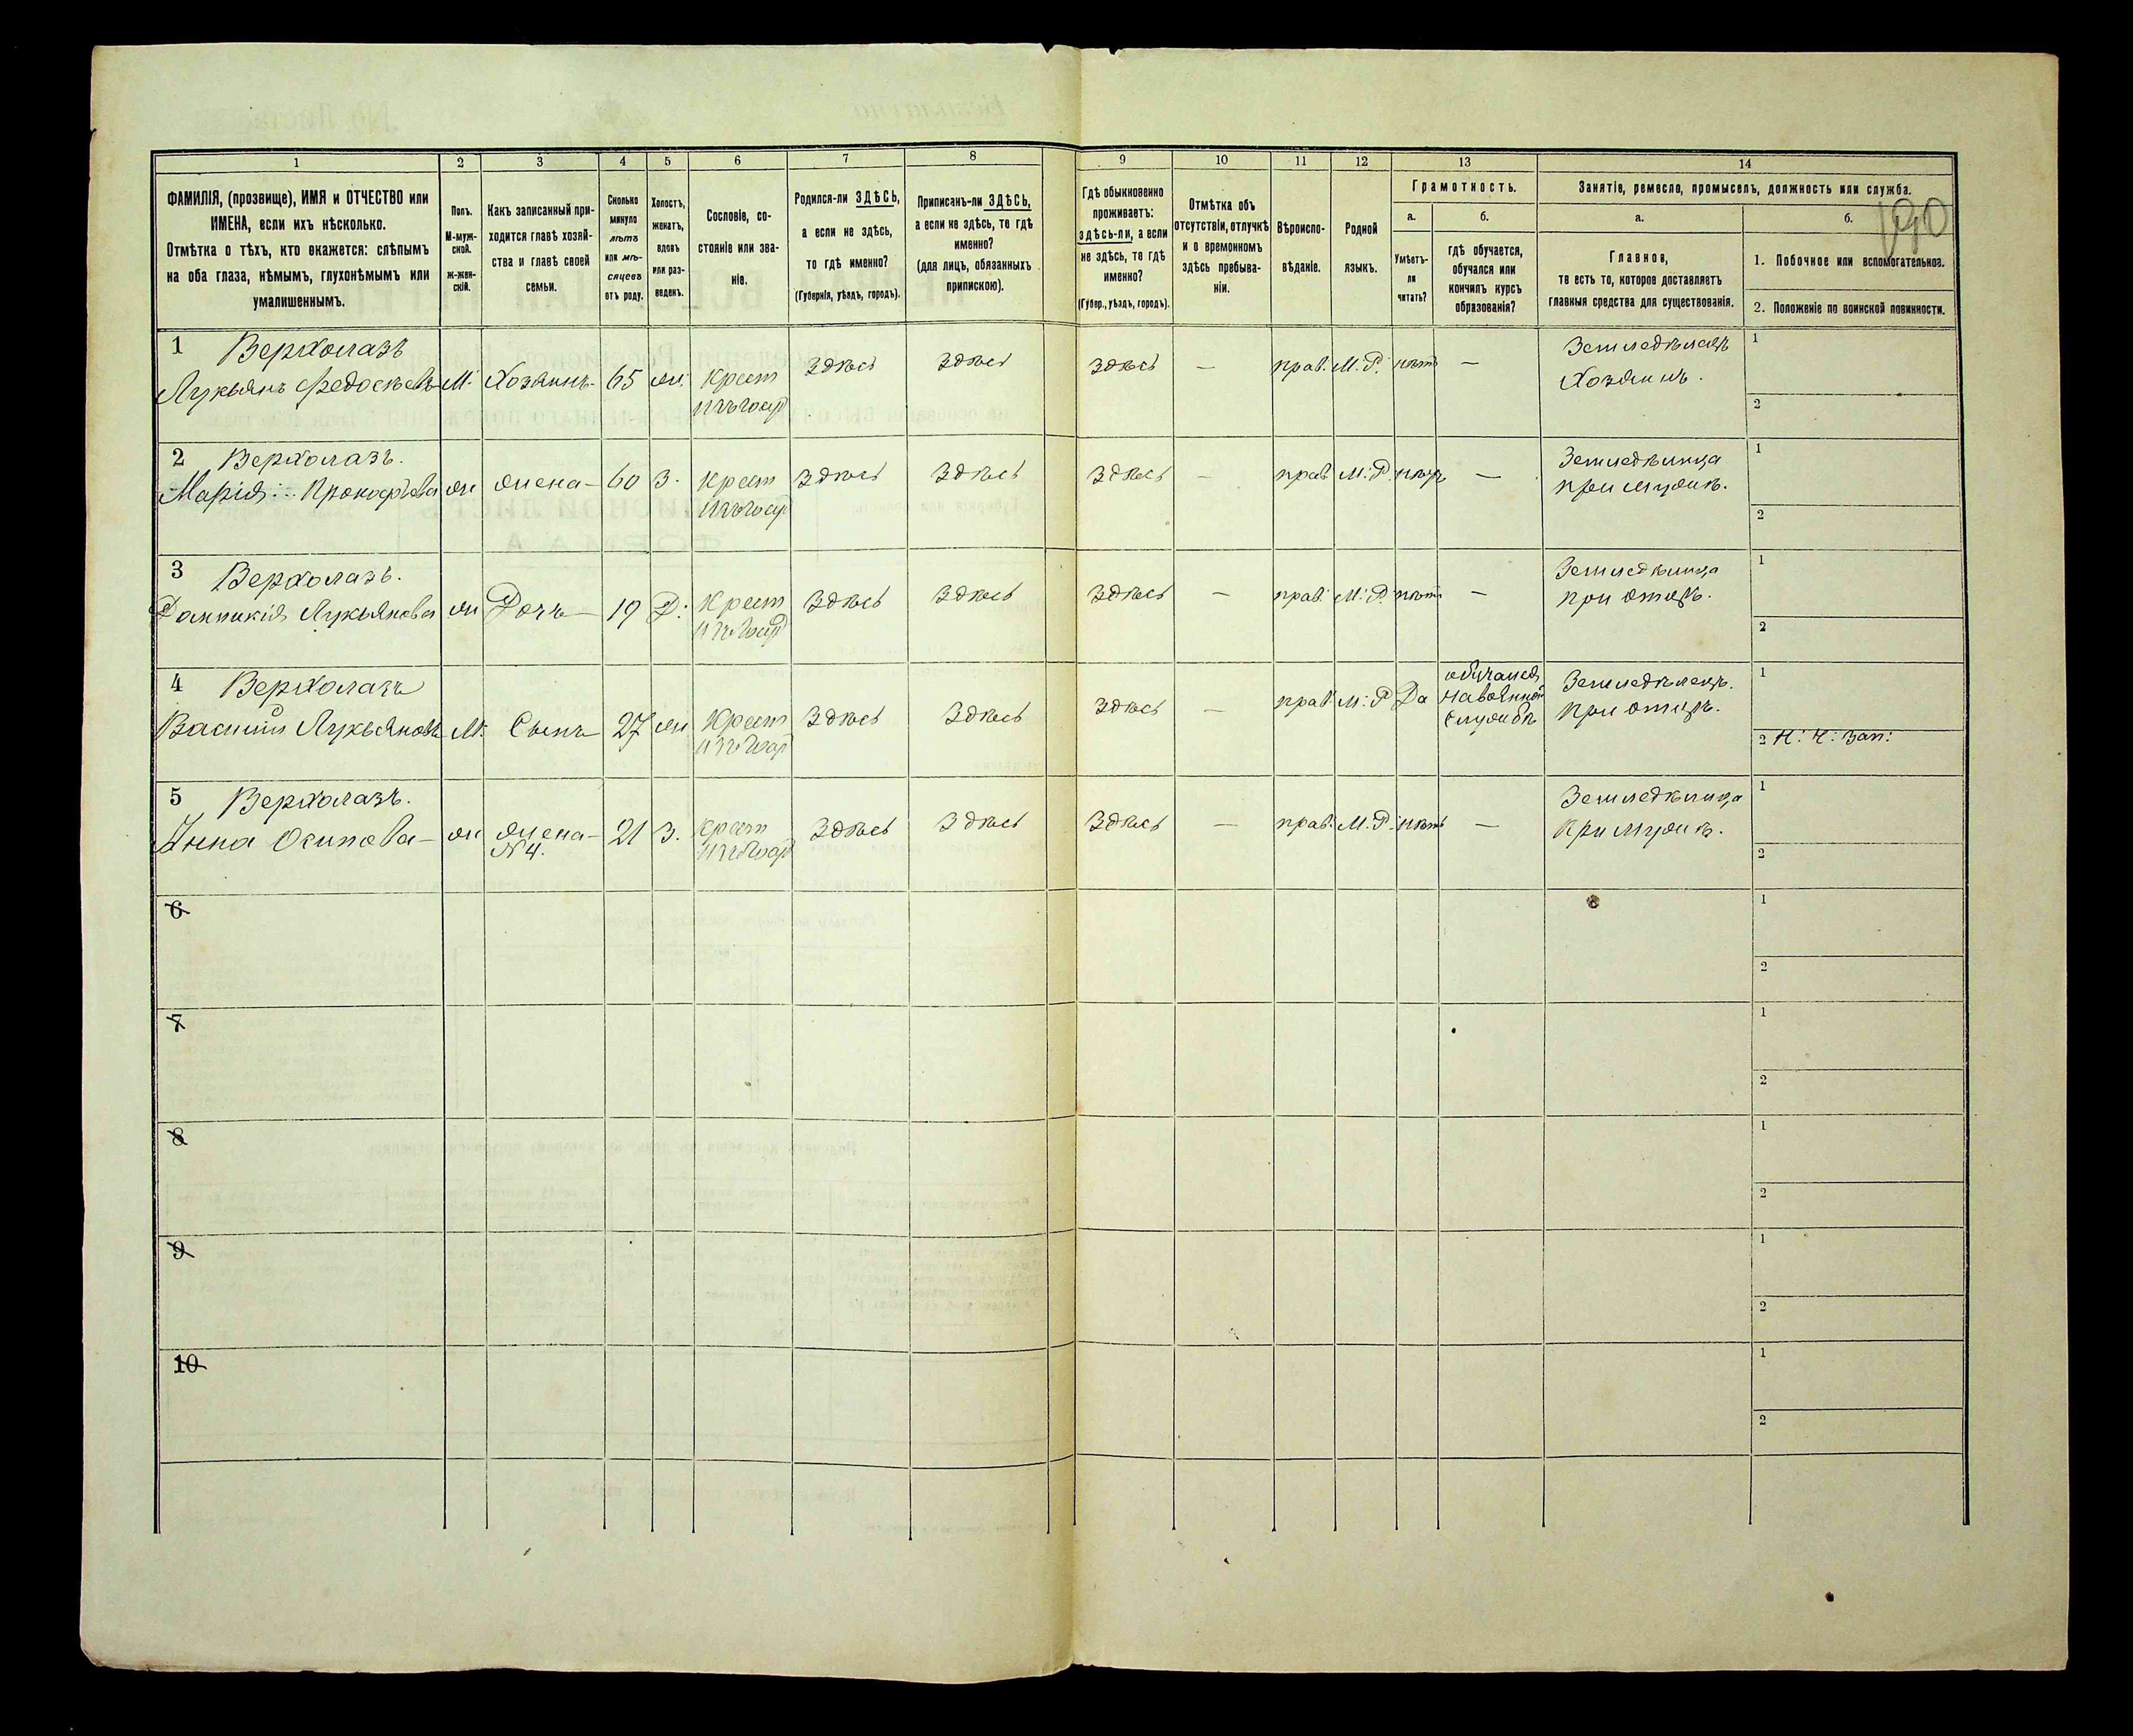 190
1 2 3 4 5 6 7 8 9 10 11 12 13 14
ФАМИЛІЯ, (прозвище), ИМЯ и ОТЧЕСТВО или
ИМЕНА, если ихъ нѣсколько.
Отмѣтка о тѣхъ, кто окажется: слѣпымъ
на оба глаза, нѣмымъ, глухонѣмымъ или
умалишеннымъ.
Полъ.
М-муж-
ской.
ж-жен-
скій.
Какъ записанный при-
ходится главѣ хозяй-
ства и главѣ своей
семьи.
Сколько
минуло
лѣтъ
или мѣ-
сяцевъ
отъ роду.
Холостъ,
женатъ,
вдовъ
или раз-
веденъ.
Сословіе, со-
стояніе или зва-
ніе.
Родился-ли ЗДѢСЬ,
а если не здѣсь,
то гдѣ именно?
(Губернія, уѣздъ, городъ).
Приписанъ-ли ЗДѢСЬ,
а если не здѣсь, то гдѣ
именно?
(для лицъ, обязанныхъ
припискою).
Гдѣ обыкновенно
проживаетъ:
здѣсь-ли, а если
не здѣсь, то гдѣ
именно?
(Губер., уѣздъ, городъ).
Отмѣтка объ
отсутствіи, отлучкѣ
и о временномъ
здѣсь пребыва-
ніи.
Вѣроиспо-
вѣданіе.
Родной
языкъ.
Грамотность.
а.
Умѣетъ-
ли
читать?
б.
гдѣ обучается,
обучался или
кончилъ курсъ
образованія?
Занятіе, ремесло, промыселъ, должность или служба.
а.
Главное,
то есть то, которое доставляетъ
главныя средства для существованія.
б.
1. Побочное или вспомогательное.
2. Положеніе по воинской повинности.
1 Верхолазъ
Лукьянъ Федосѣевъ М. Хозяинъ 65 ж. Крест Здѣсь Здѣсь Здѣсь — прав. М. Р. нѣтъ — Земледѣлецъ 1
изъ госуд Хозяинъ. 2
2 Верхолазъ.
Марія Прокофьева ж жена 60 З. Крест Здѣсь Здѣсь Здѣсь — прав М. Р. нѣтъ — Земледѣлица 1
изъ госуд при мужѣ. 2
3 Верхолазъ.
Лукьянова ж Дочь 19 Д. Крест Здѣсь Здѣсь Здѣсь — прав. М. Р. нѣтъ — Земледѣлица 1
изъ госуд при отцѣ. 2
4 Верхолазъ
Василий Лукьяновъ М. Сынъ 27 ж Крест Здѣсь Здѣсь Здѣсь — прав М. Р Да обучался Земледѣлецъ. 1
изъ госуд на военной при отцѣ.
службѣ 2 Н. Ч. Зап:
5 Верхолазъ.
Анна Осипова ж жена 21 З. Крест Здѣсь Здѣсь Здѣсь — прав. М. Р. нѣтъ — Земледѣлица 1
N 4. изъ госуд при мужѣ. 2
6 1
2
7 1
2
8 1
2
9 1
2
10 1
2